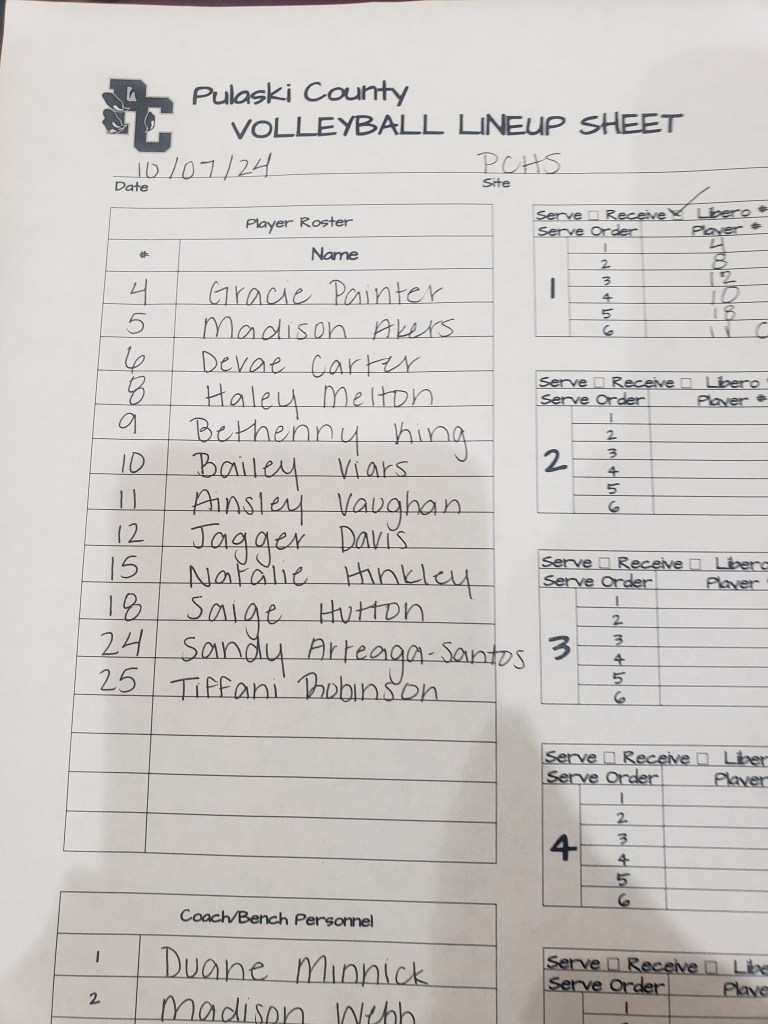 Pulaski County
VOLLEYBALL LINEUP SHEET
10/07/24 PCHS
Date Site
Player Roster
# Name
4 Gracie Painter
5 Madison Akers
6 Devae Carter
8 Haley Melton
9 Bethenny King
10 Bailey Viars
11 Ainsley Vaughan
12 Jagger Davis
15 Natalie Hinkley
18 Saige Hutton
24 Sandy Arteaga-Santos
25 Tiffani Robinson
Coach/Bench Personnel
1 Duane Minnick
2 Madison Webb
Serve □ Receive ✓ Libero #
Serve Order Player #
1
1 4
2 8
3 12
4 10
5 18
6 11 C
Serve □ Receive □ Libero
Serve Order Player #
2
1
2
3
4
5
6
Serve □ Receive □ Libero
Serve Order Player
3
1
2
3
4
5
6
Serve □ Receive □ Liber
Serve Order Player
4
1
2
3
4
5
6
Serve □ Receive □ Libe
Serve Order Playe
1